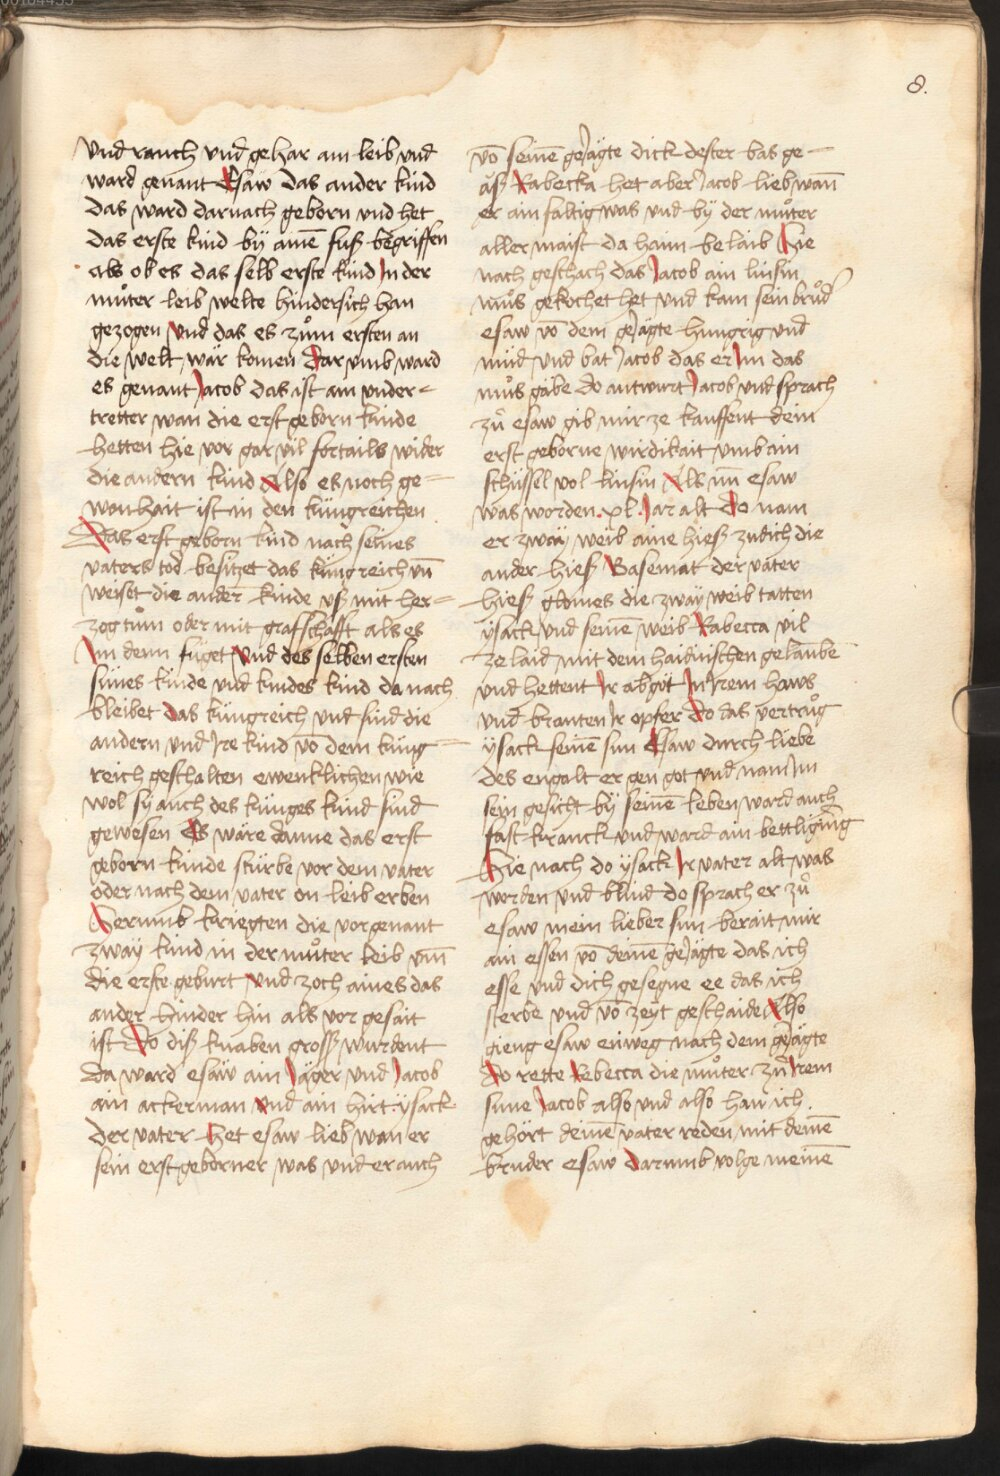 8.
vnd rauch vnd gehar am leib vnd
ward genant Esaw das ander kind
das ward darnach geborn vnd het
das erste kind bÿ aim̄e fuß begriffen
als ob es das selb erste kind In der
muͦter leib welte hindersich han
gezogen Vnd das es zuͦm ersten an
die welt wär komen Dar vmb ward
es genant Jacob das ist ain vnder=
tretter wan die erst geborn kinde
hetten hie vor gar vil fortails wider
die andern kind Also es noch ge=
wonhait ist in den küngreichen
Das erst geborn kind nach seines
vaters tod besitzet das küngreich vn̄
weiset die ander kinde vß mit her=
zogtum oder mit grafschafft als es
Im denn fůget Vnd des selben ersten
sünes kinde vnd kindes kind da nach
bleibet das küngreich vnd sind die
andern vnd Jre kind vō dem küng=
reich geschalten ewenklichen wie
wol sÿ auch des künges kind sind
gewesen Es wäre danne das erst
geborn kinde stürbe vor dem vater
oder nach dem vater on leib erben
Herumb kriegten die vorgenant
zwaÿ kind in der muͦter leib vm̄
die erste geburt Vnd zoch aines das
ander hinder hin als vor gesait
ist Do diß knaben groß wurdent
da ward esaw ain Jäger vnd Jacob
ain ackerman vnd ain hirt ÿsack
der vater het esaw lieb wan er
sein erst geborner was vnd er auch
vō seinē geJägte dick dester bas ge=
aß Rabecka het aber Jacob lieb wan̄
er ainfaltig was vnd bÿ der muͦter
aller maist da haim belaib Hie
nach geschach das Jacob ain linsin
muͦs gekochet het vnd kam sein bruͦd'
esaw vō dem geJägte hungrig vnd
müd vnd bat Jacob das er Im das
muͦs gäbe do antwurt Jacob vnd sprach
zuͦ esaw gib mir ze kauffent dein
erst geborne wirdikait vmb ain
schüssel vol linsin Als nū esaw
was worden .xl. Jar alt Do nam
er zwaÿ weib aine hieß Judich die
ander hieß Basemat der vater
hieß die zwaÿ weib tatten
ÿsack vnd seinē weib Rabecca vil
ze laid mit dem haidnischen gelaube
vnd hettent Jr abgöt In Jrem haws
vnd branten Jr opfer Do das vertruͦg
ÿsack seinē sun Esaw durch liebe
des engalt er gen got vnd nam Im
sein gesicht bÿ seinē leben ward auch
fast kranck vnd ward ain bettliging
Hie nach do ÿsack Jr vater alt was
worden vnd blind do sprach er zuͦ
esaw mein lieber sun berait mir
ain essen vō deinē geJägte das ich
esse vnd dich gesegne ee das ich
sterbe vnd vō zeÿt geschaide Also
gieng esaw enweg nach dem geJägte
Do rette Rebecca die muͦter zuͦ Jrem
sune Jacob also vnd also han ich
gehört deinē vater reden mit deinē
bruder esaw darumb volge meinē